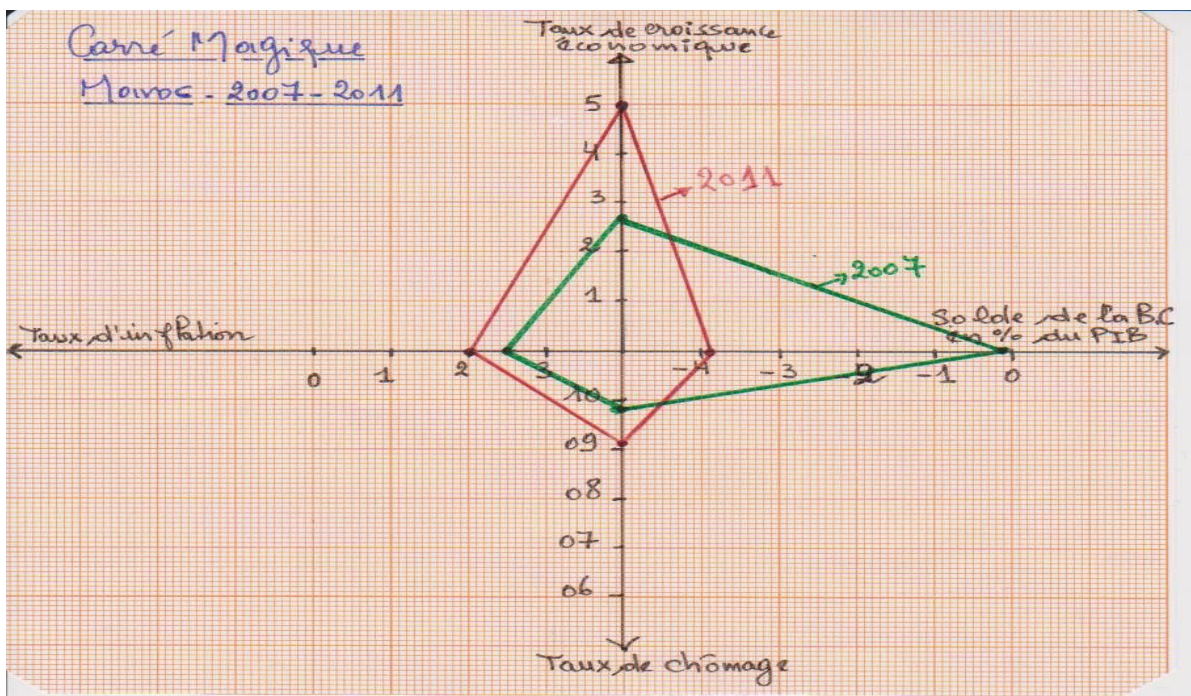 Carré Magique
Maroc - 2007-2011
Taux de croissance
économique
5
4
3
2011
2
2007
1
Solde de la B.C
en % du PIB
Taux d'inflation
0
1
2
3
-4
-3
-2
-1
0
10
09
08
07
06
Taux de chômage